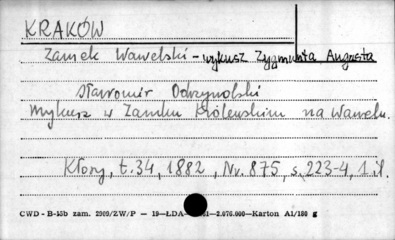 KRAKÓW
Zamek Wawelski - wykusz Zygmunta Augusta
Sławomir Odrzywolski
Wykusz w Zamku Królewskim na Wawelu.
Kłosy, t. 34, 1882, Nr. 875, s. 223-4, 1 il.
CWD - B-15b zam. 2909/ZW/P — 19—ŁDA— —2.070.000—Karton A1/180 g